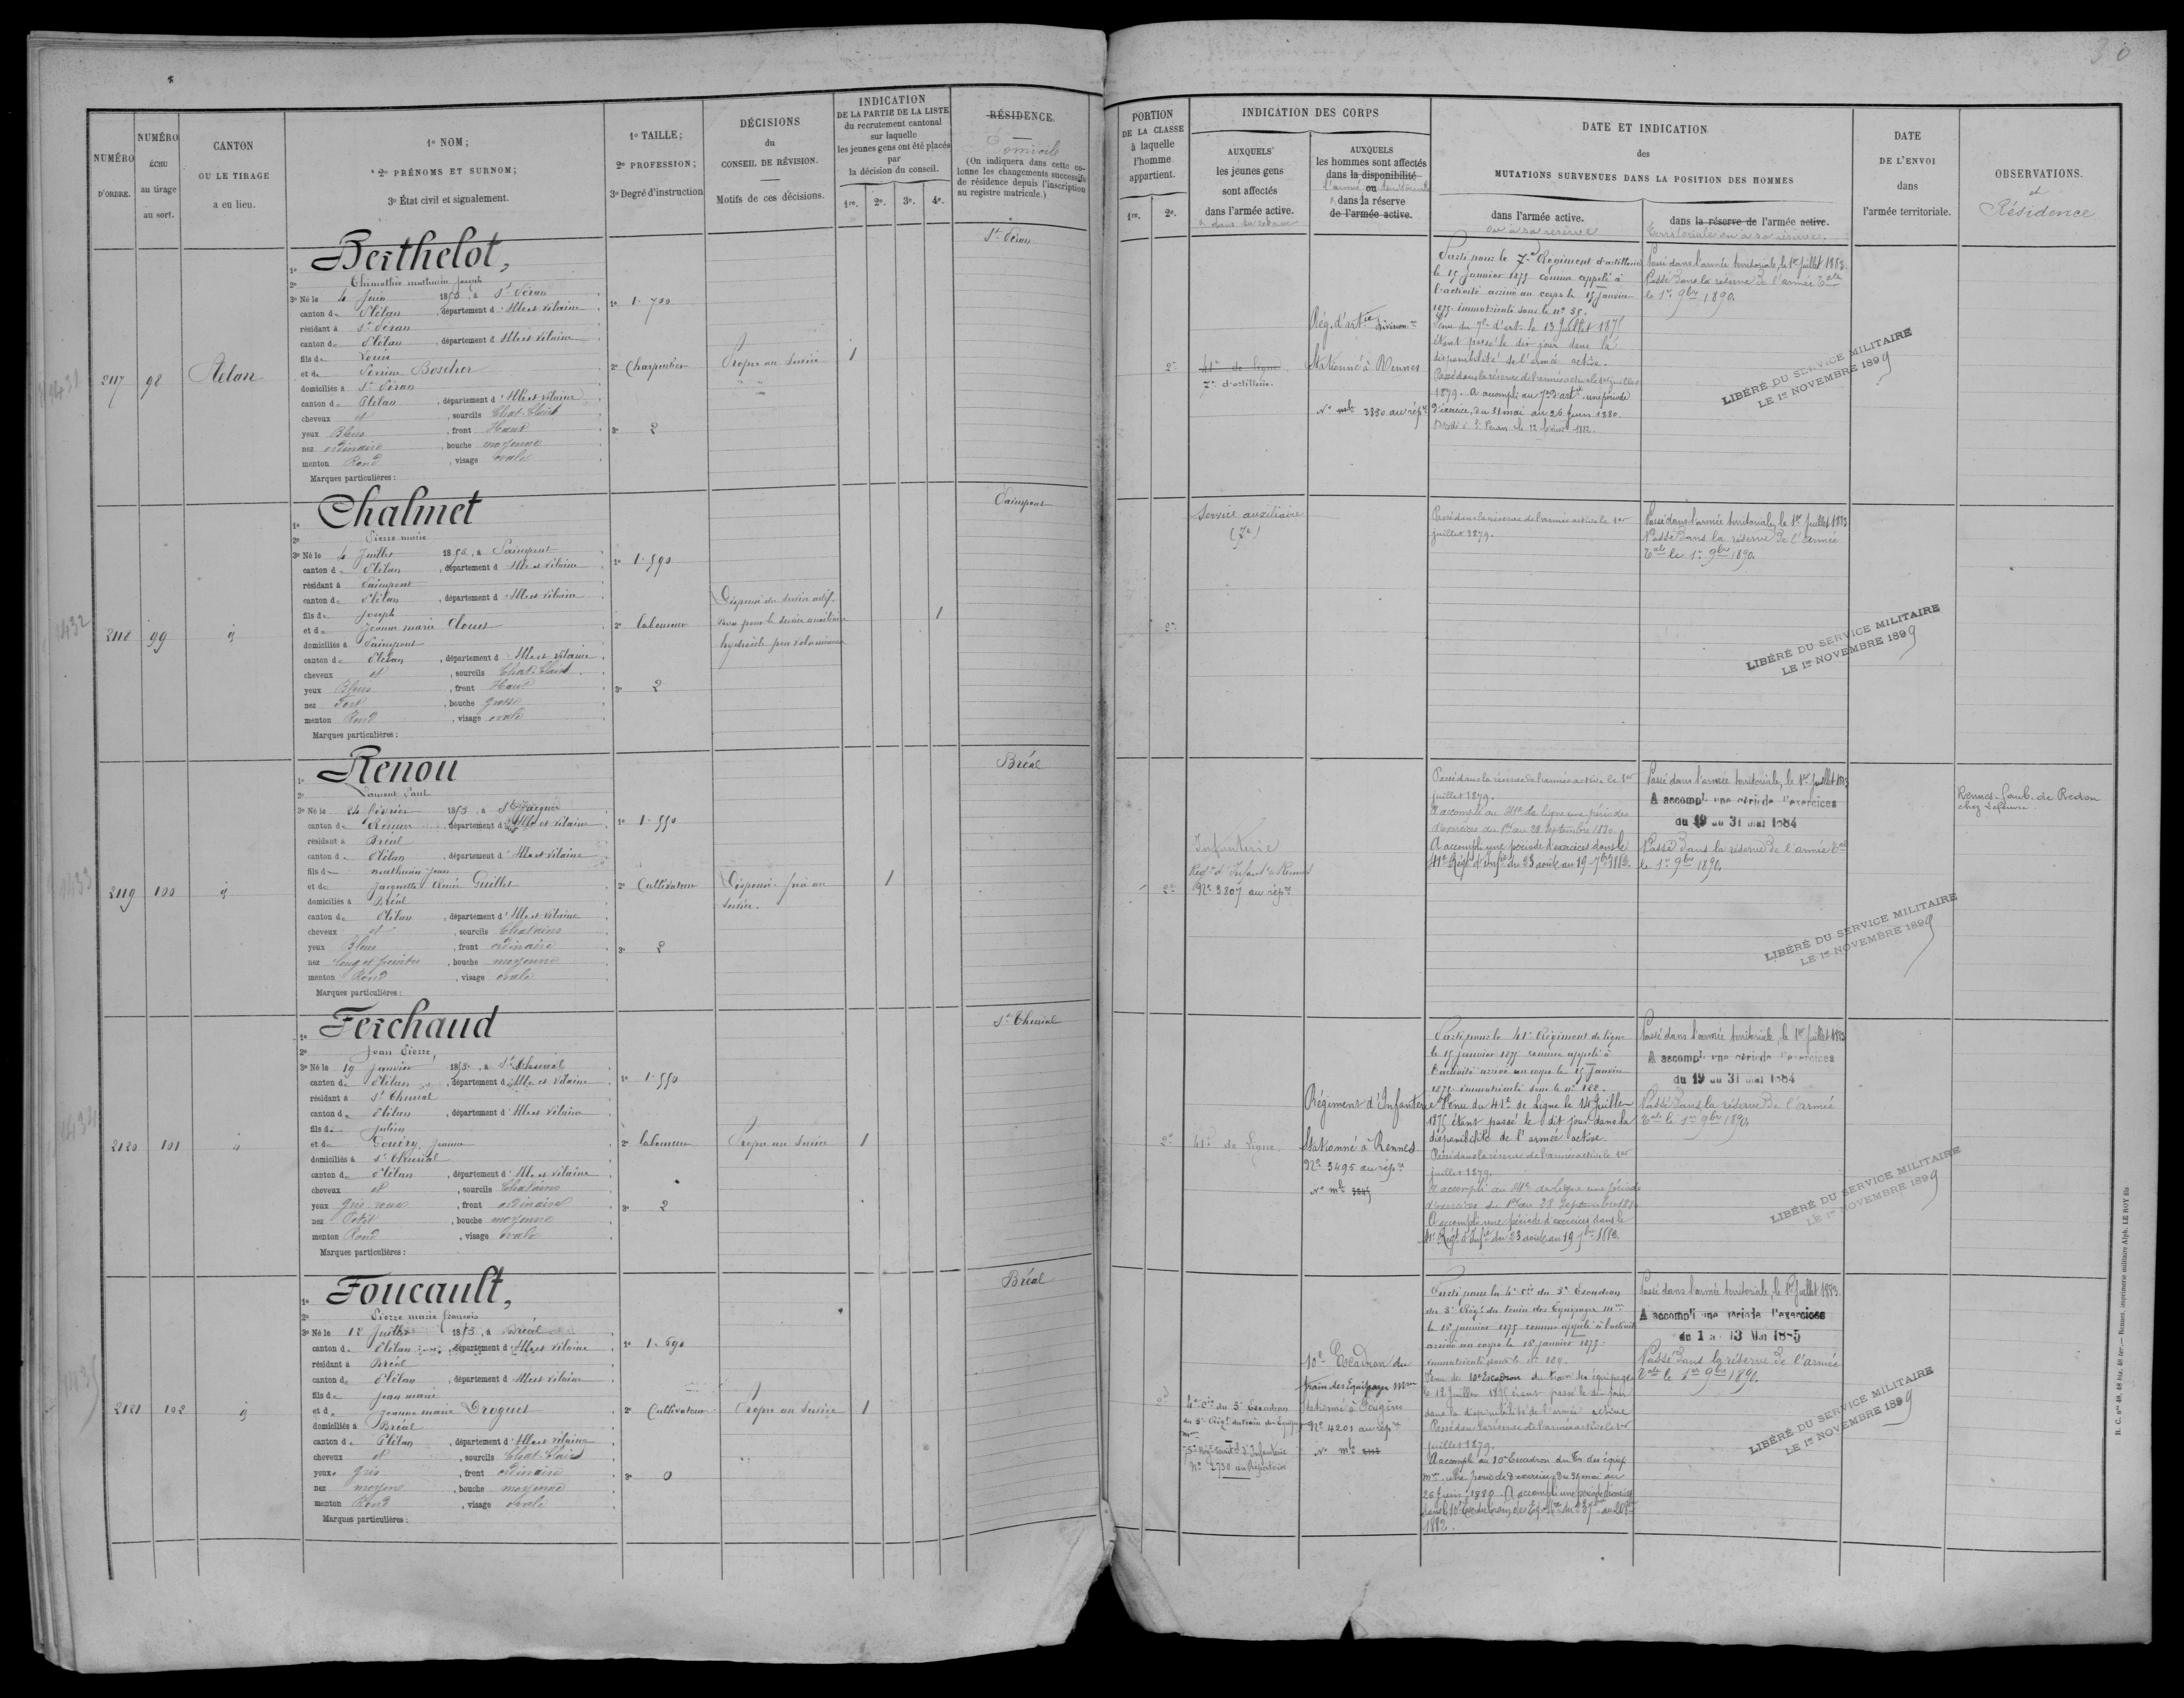 30
NUMÉRO D'ORDRE.
NUMÉRO ÉCHU au tirage au sort.
CANTON OU LE TIRAGE a eu lieu.
1º NOM;
2º PRÉNOMS ET SURNOM;
3º État civil et signalement.
1º TAILLE;
2º PROFESSION;
3º Degré d'instruction
DÉCISIONS du CONSEIL DE RÉVISION.
Motifs de ces décisions.
INDICATION DE LA PARTIE DE LA LISTE du recrutement cantonal sur laquelle les jeunes gens ont été placés par la décision du conseil.
1re. 2e. 3e. 4e.
RÉSIDENCE.
Domicile
(On indiquera dans cette colonne les changements successifs de résidence depuis l'inscription au registre matricule.)
PORTION DE LA CLASSE à laquelle l'homme appartient.
1re. 2e.
INDICATION DES CORPS
AUXQUELS les jeunes gens sont affectés dans l'armée active.
AUXQUELS les hommes sont affectés dans la disponibilité ou dans la réserve de l'armée active.
DATE ET INDICATION des MUTATIONS SURVENUES DANS LA POSITION DES HOMMES
dans l'armée active.
ou a sa réserve
dans la réserve de l'armée active.
territoriale ou a sa réserve.
DATE DE L'ENVOI dans l'armée territoriale.
OBSERVATIONS.
et Résidence
2117 98
Berthelot,
mathurin Joseph
3º Né le 4 Juin 1853, à St Péran
canton de Plélan, département d'Ille et Vilaine
résidant à St Péran
canton de Plélan, département d'Ille et Vilaine
fils de Louis
et de Perrine Boscher
domiciliés à St Péran
canton de Plélan, département d'Ille et Vilaine
cheveux et, sourcils Chat. Clairs
yeux Bleus, front Haut
nez ordinaire, bouche moyenne
menton Rond, visage ovale
Marques particulières:
1º 1.700
2º Charpentier
3º 2
Propre au service
1
St Péran
2e
41e de ligne
7e d'artillerie.
Rég. d'artie division.re
Stationné à Rennes
No mle 3880 au rép.re
Parti pour le 7e Régiment d'artillerie
le 15 Janvier 1875 comme appelé à
l'activité arrivé au corps le 15 Janvier
1875 immatriculé sous le nº 35.
Venu du 7e d'art. le 13 Juillet 1875
étant passé le dit jour dans la
disponibilité de l'armée active.
Passé dans la réserve de l'armée active le 1er juillet
1879. A accompli au 7e d'art. une période
d'exercice, du 31 mai au 26 juin 1880.
Passé dans l'armée territoriale, le 1er juillet 1883.
Passé dans la réserve de l'armée Tale
le 1er 9bre 1890.
LIBÉRÉ DU SERVICE MILITAIRE
LE 1er NOVEMBRE 1899
1432
2118 99
Chalmet
Pierre marie
3º Né le 4 Juillet 1853, à Paimpont
canton de Plélan, département d'Ille et Vilaine
résidant à Paimpont
canton de Plélan, département d'Ille et Vilaine
fils de Joseph
et de Jeanne marie
domiciliés à Paimpont
canton de Plélan, département d'Ille et Vilaine
cheveux et, sourcils Chat. Clairs
yeux Bleus, front Haut
nez Fort, bouche grosse
menton Rond, visage ovale
Marques particulières:
1º 1.590
2º laboureur
3º 2
Dispensé du service actif
Bon pour le service auxiliaire
hydrocèle peu volumineuse
1
Paimpont
2e
Service auxiliaire
Passé dans la réserve de l'armée active le 1er
juillet 1879.
Passé dans l'armée territoriale, le 1er juillet 1883
Passé dans la réserve de l'armée
Tale le 1er 9bre 1890.
LIBÉRÉ DU SERVICE MILITAIRE
LE 1er NOVEMBRE 1899
1433
2119 100
Renou
Laurent Paul
3º Né le 24 février 1853, à St Jacques
canton de Rennes, département d'Ille et Vilaine
résidant à Bréal
canton de Plélan, département d'Ille et Vilaine
fils de mathurin Jean
et de Jacquette Guillet
domiciliés à Bréal
canton de Plélan, département d'Ille et Vilaine
cheveux et, sourcils Chatains
yeux Bleus, front ordinaire
nez long et pointu, bouche moyenne
menton Rond, visage ovale
Marques particulières:
1º 1.550
2º Cultivateur
3º 2
Dispensé. frère au
service.
1
Bréal
2e
Infanterie
Régt d'Infant. de Rennes
No 3807 au rép.re
Passé dans la réserve de l'armée active le 1er
juillet 1879.
A accompli au 41e de ligne une période
d'exercices du 1er au 28 Septembre 1880.
A accompli une période d'exercices dans le
41e Régt d'Infie du 23 août au 19 7bre 1882.
Passé dans l'armée territoriale, le 1er juillet 1883
A accompli une période d'exercices
du 19 au 31 mai 1884
Passé dans la réserve de l'armée Tale
le 1er 9bre 1890.
LIBÉRÉ DU SERVICE MILITAIRE
LE 1er NOVEMBRE 1899
Rennes. faub. de Redon
chez Lefeuvre
1434
2120 101
Ferchaud
Jean Pierre,
3º Né le 19 janvier 1853, à St Thurial
canton de Plélan, département d'Ille et Vilaine
résidant à St Thurial
canton de Plélan, département d'Ille et Vilaine
fils de Julien
et de Jeanne
domiciliés à St Thurial
canton de Plélan, département d'Ille et Vilaine
cheveux et, sourcils Chatains
yeux gris roux, front ordinaire
nez Petit, bouche moyenne
menton Rond, visage ovale
Marques particulières:
1º 1.550
2º laboureur
3º 2
Propre au service
1
St Thurial
2e
41e de ligne.
Régiment d'Infanterie
Stationné à Rennes
No 3495 au rép.re
No mle
Parti pour le 41e Régiment de ligne
le 15 janvier 1875 comme appelé à
l'activité arrivé au corps le 15 Janvier
1875 immatriculé sous le nº
Venu du 41e de Ligne le 14 Juillet
1875 étant passé le dit jour dans la
disponibilité de l'armée active.
Passé dans la réserve de l'armée active le 1er
juillet 1879.
A accompli au 41e de Ligne une période
d'exercices du 1er au 28 Septembre 1880
A accompli une période d'exercices dans le
41e Régt d'Infie du 23 août au 19 7bre 1882.
Passé dans l'armée territoriale, le 1er juillet 1883
A accompli une période d'exercices
du 19 au 31 mai 1884
Passé dans la réserve de l'armée
Tale le 1er 9bre 1890.
LIBÉRÉ DU SERVICE MILITAIRE
LE 1er NOVEMBRE 1899
2121 102
Foucault,
Pierre marie françois
3º Né le 12 Juillet 1853, à Bréal
canton de Plélan, département d'Ille et Vilaine
résidant à Bréal
canton de Plélan, département d'Ille et Vilaine
fils de Jean marie
et de Jeanne marie Droguet
domiciliés à Bréal
canton de Plélan, département d'Ille et Vilaine
cheveux et, sourcils Chat. Clairs
yeux Gris, front ordinaire
nez moyen, bouche moyenne
menton Rond, visage ovale
Marques particulières:
1º 1.690
2º Cultivateur
3º 0
Propre au service
1
Bréal
2e
4e Cie du 5e Escadron
du 3e Régt du train des Équipages
No 2730 au Répertoire
10e Escadron du
train des Équipages Mres
Stationné à Fougères
No 4201 au rép.re
No mle
Parti pour la 4e Cie du 5e Escadron
du 3e Régt du train des Équipages mres
le 16 janvier 1875 comme appelé à l'activité
arrivé au corps le 16 janvier 1875
Venu du 10e Escadron du train des équipages
le 12 Juillet 1875 étant passé le dit jour
dans la disponibilité de l'armée active
Passé dans la réserve de l'armée active le 1er
juillet 1879.
A accompli au 10e Escadron du Tr. des équip.
mres une période d'exercices du 31 mai au
26 Juin 1880. A accompli une période d'exercices
1882.
Passé dans l'armée territoriale, le 1er Juillet 1883.
A accompli une période d'exercices
du 1 au 13 Mai 1885
Passé dans la réserve de l'armée
Tale le 1er 9bre 1890.
LIBÉRÉ DU SERVICE MILITAIRE
LE 1er NOVEMBRE 1899
Rennes, imprimerie militaire Alph. LE ROY fils